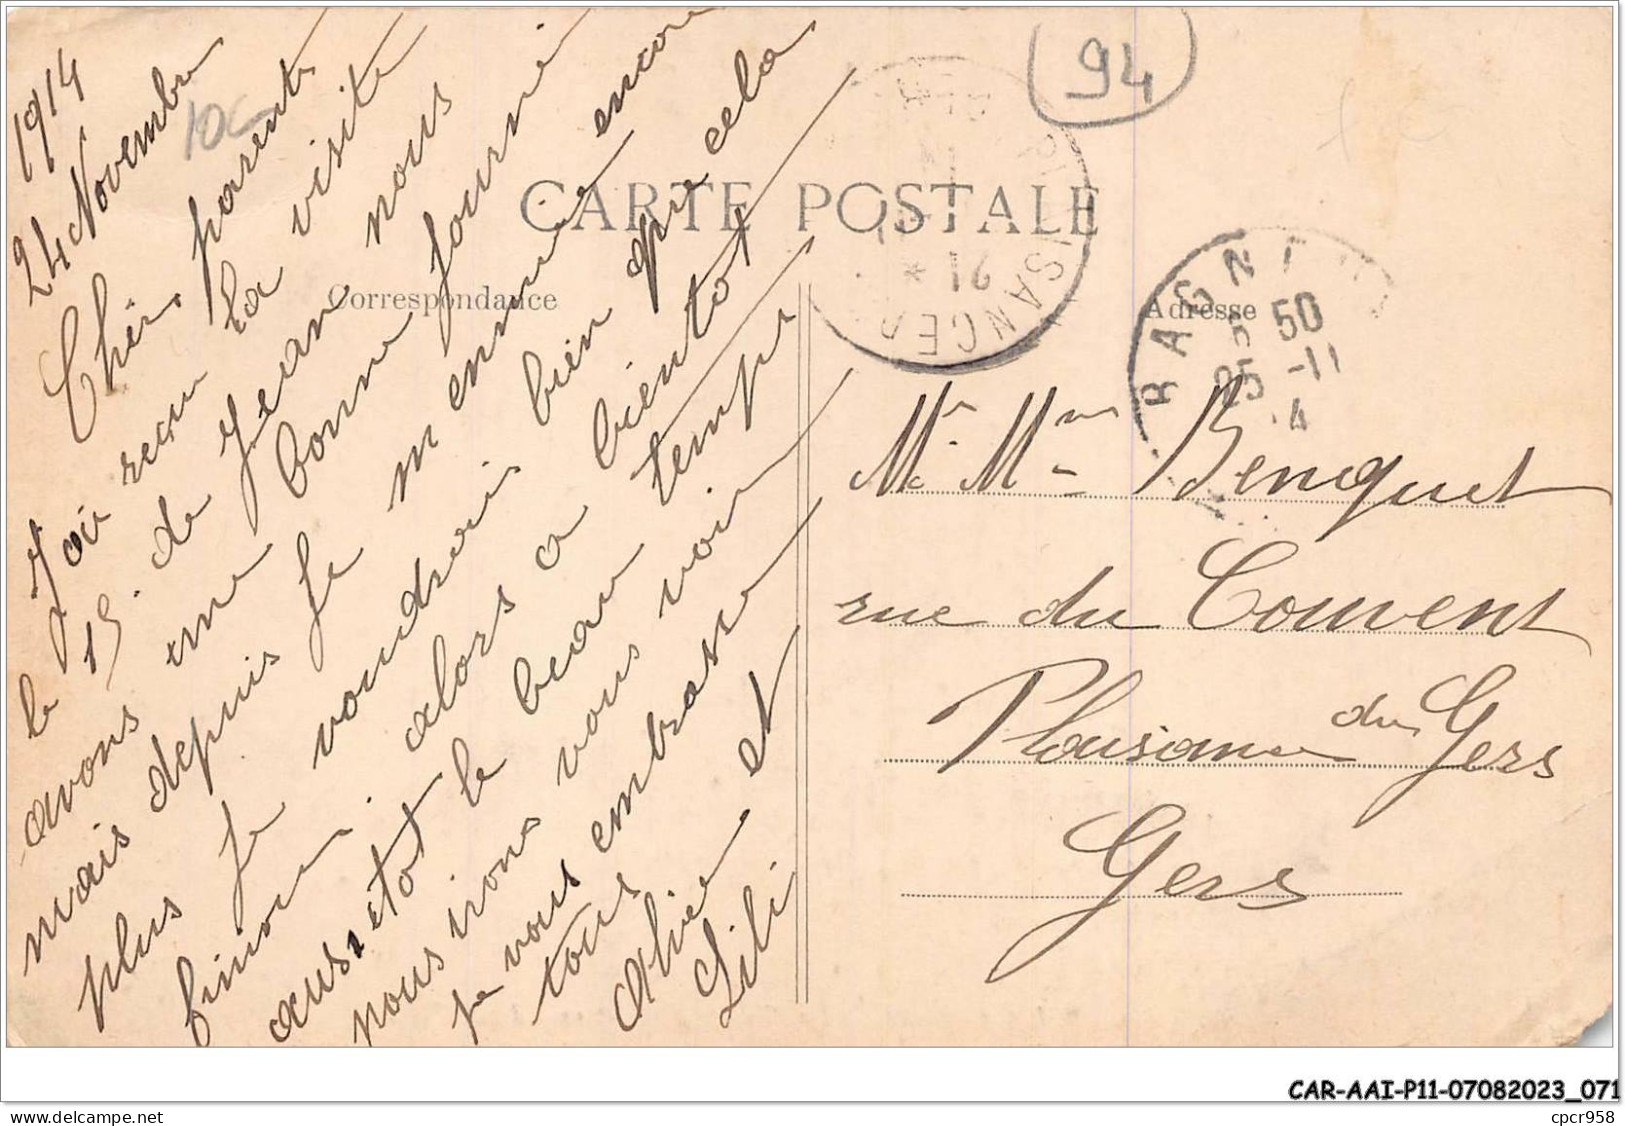 1914
24 Novembre
Chers parents
J'ai reçu la visite
le 15 de Jean nous
avons une bonne journé
mais depuis je m'ennuie encore
plus je voudrais bien que cela
finou alors a bientot
aussitot le beau temps
nous irons vous voir
je vous embrasse
tous et
Lili
10€
94
CARTE POSTALE
Correspondance
Adresse
21 *
BAGN
5 50
25 -11
4
Mr Mme Benquet
rue du Couvent
Plaisance du Gers
Gers
CAR-AAI-P11-07082023_071
www.delcampe.net
cpcr958